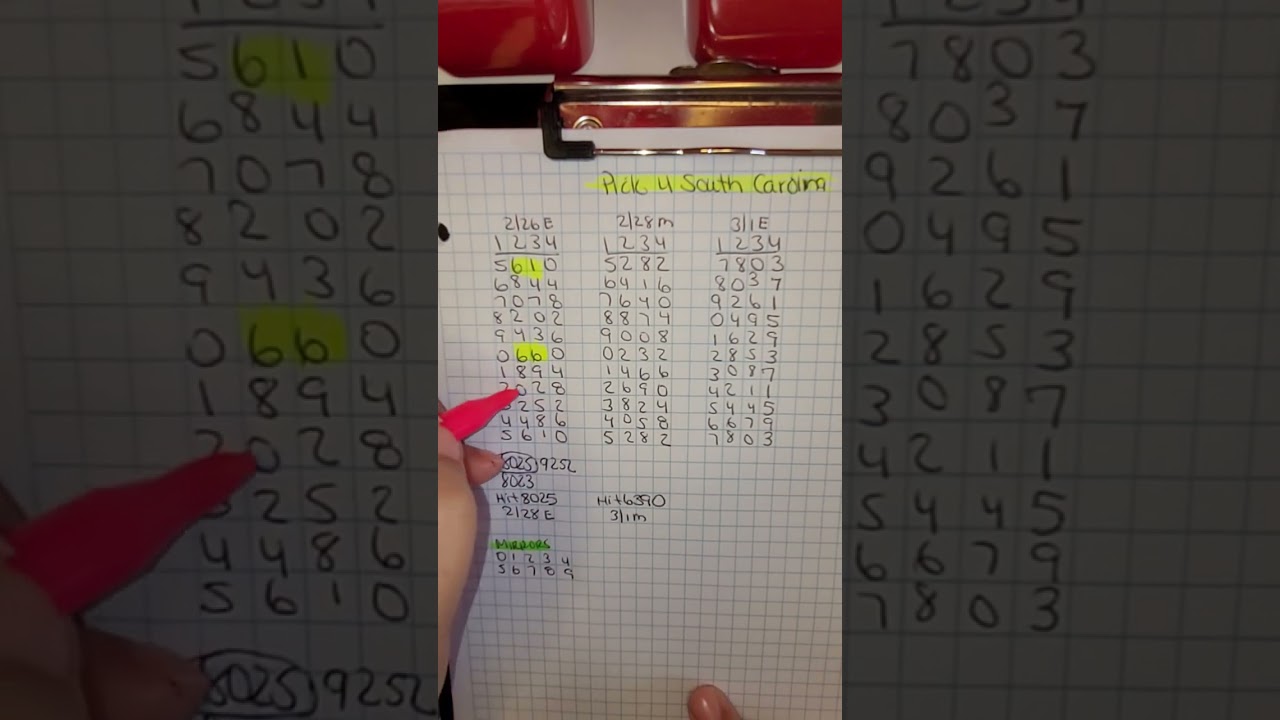 Pick 4 South Carolina
2/26 E 2/28 m 3/1 E
1234 1234 1234
5610 5282 7803
6844 6416 8037
7078 7640 9261
8202 8874 0495
9436 9008 1629
0660 0232 2853
1894 1466 3087
2028 2690 4211
3252 3824 5445
4486 4058 6679
5610 5282 7803
8025 9252
8023
Hit 8025 Hit 6390
2/28 E 3/1 m
MIRRORS
0 1 2 3 4
5 6 7 8 9